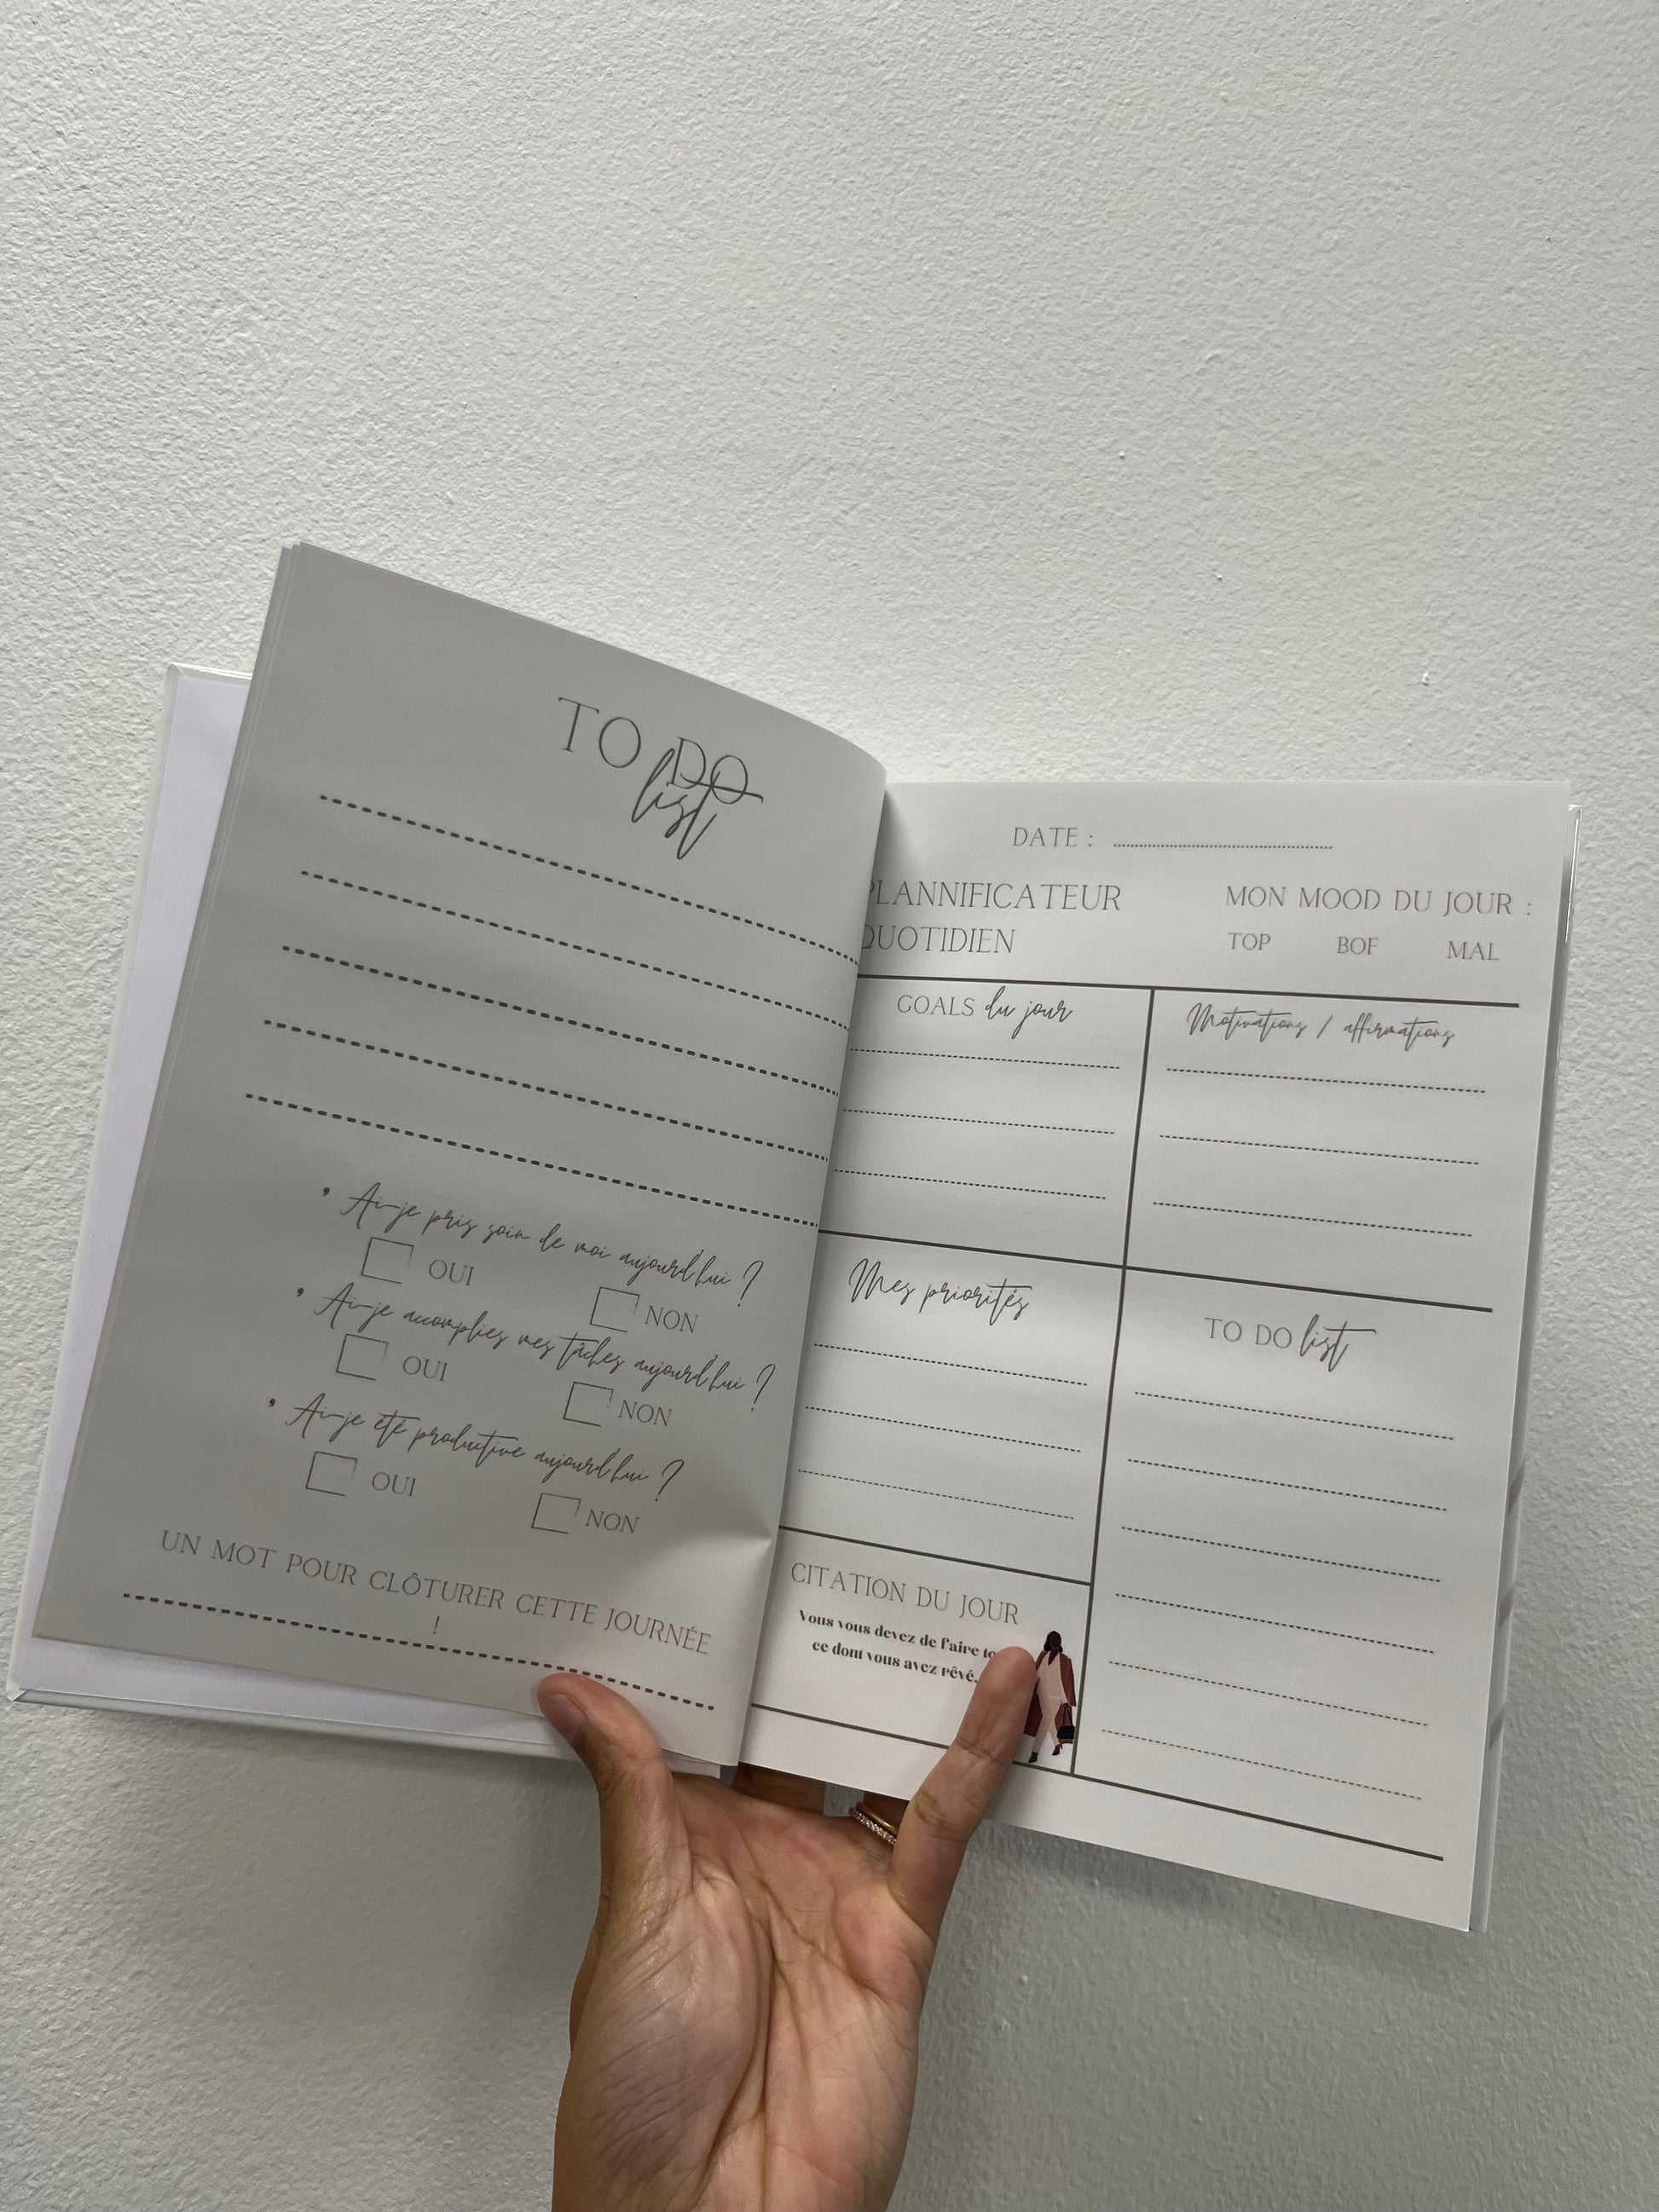 TO DO
list
• Ai-je pris soin de moi aujourd'hui ?
OUI NON
• Ai-je accomplies mes tâches aujourd'hui ?
OUI NON
• Ai-je été productive aujourd'hui ?
OUI NON
UN MOT POUR CLÔTURER CETTE JOURNÉE
!
DATE :
PLANNIFICATEUR
QUOTIDIEN
MON MOOD DU JOUR :
TOP BOF MAL
GOALS du jour
Motivations / affirmations
Mes priorités
TO DO list
CITATION DU JOUR
Vous vous devez de faire
ce dont vous avez rêvé.